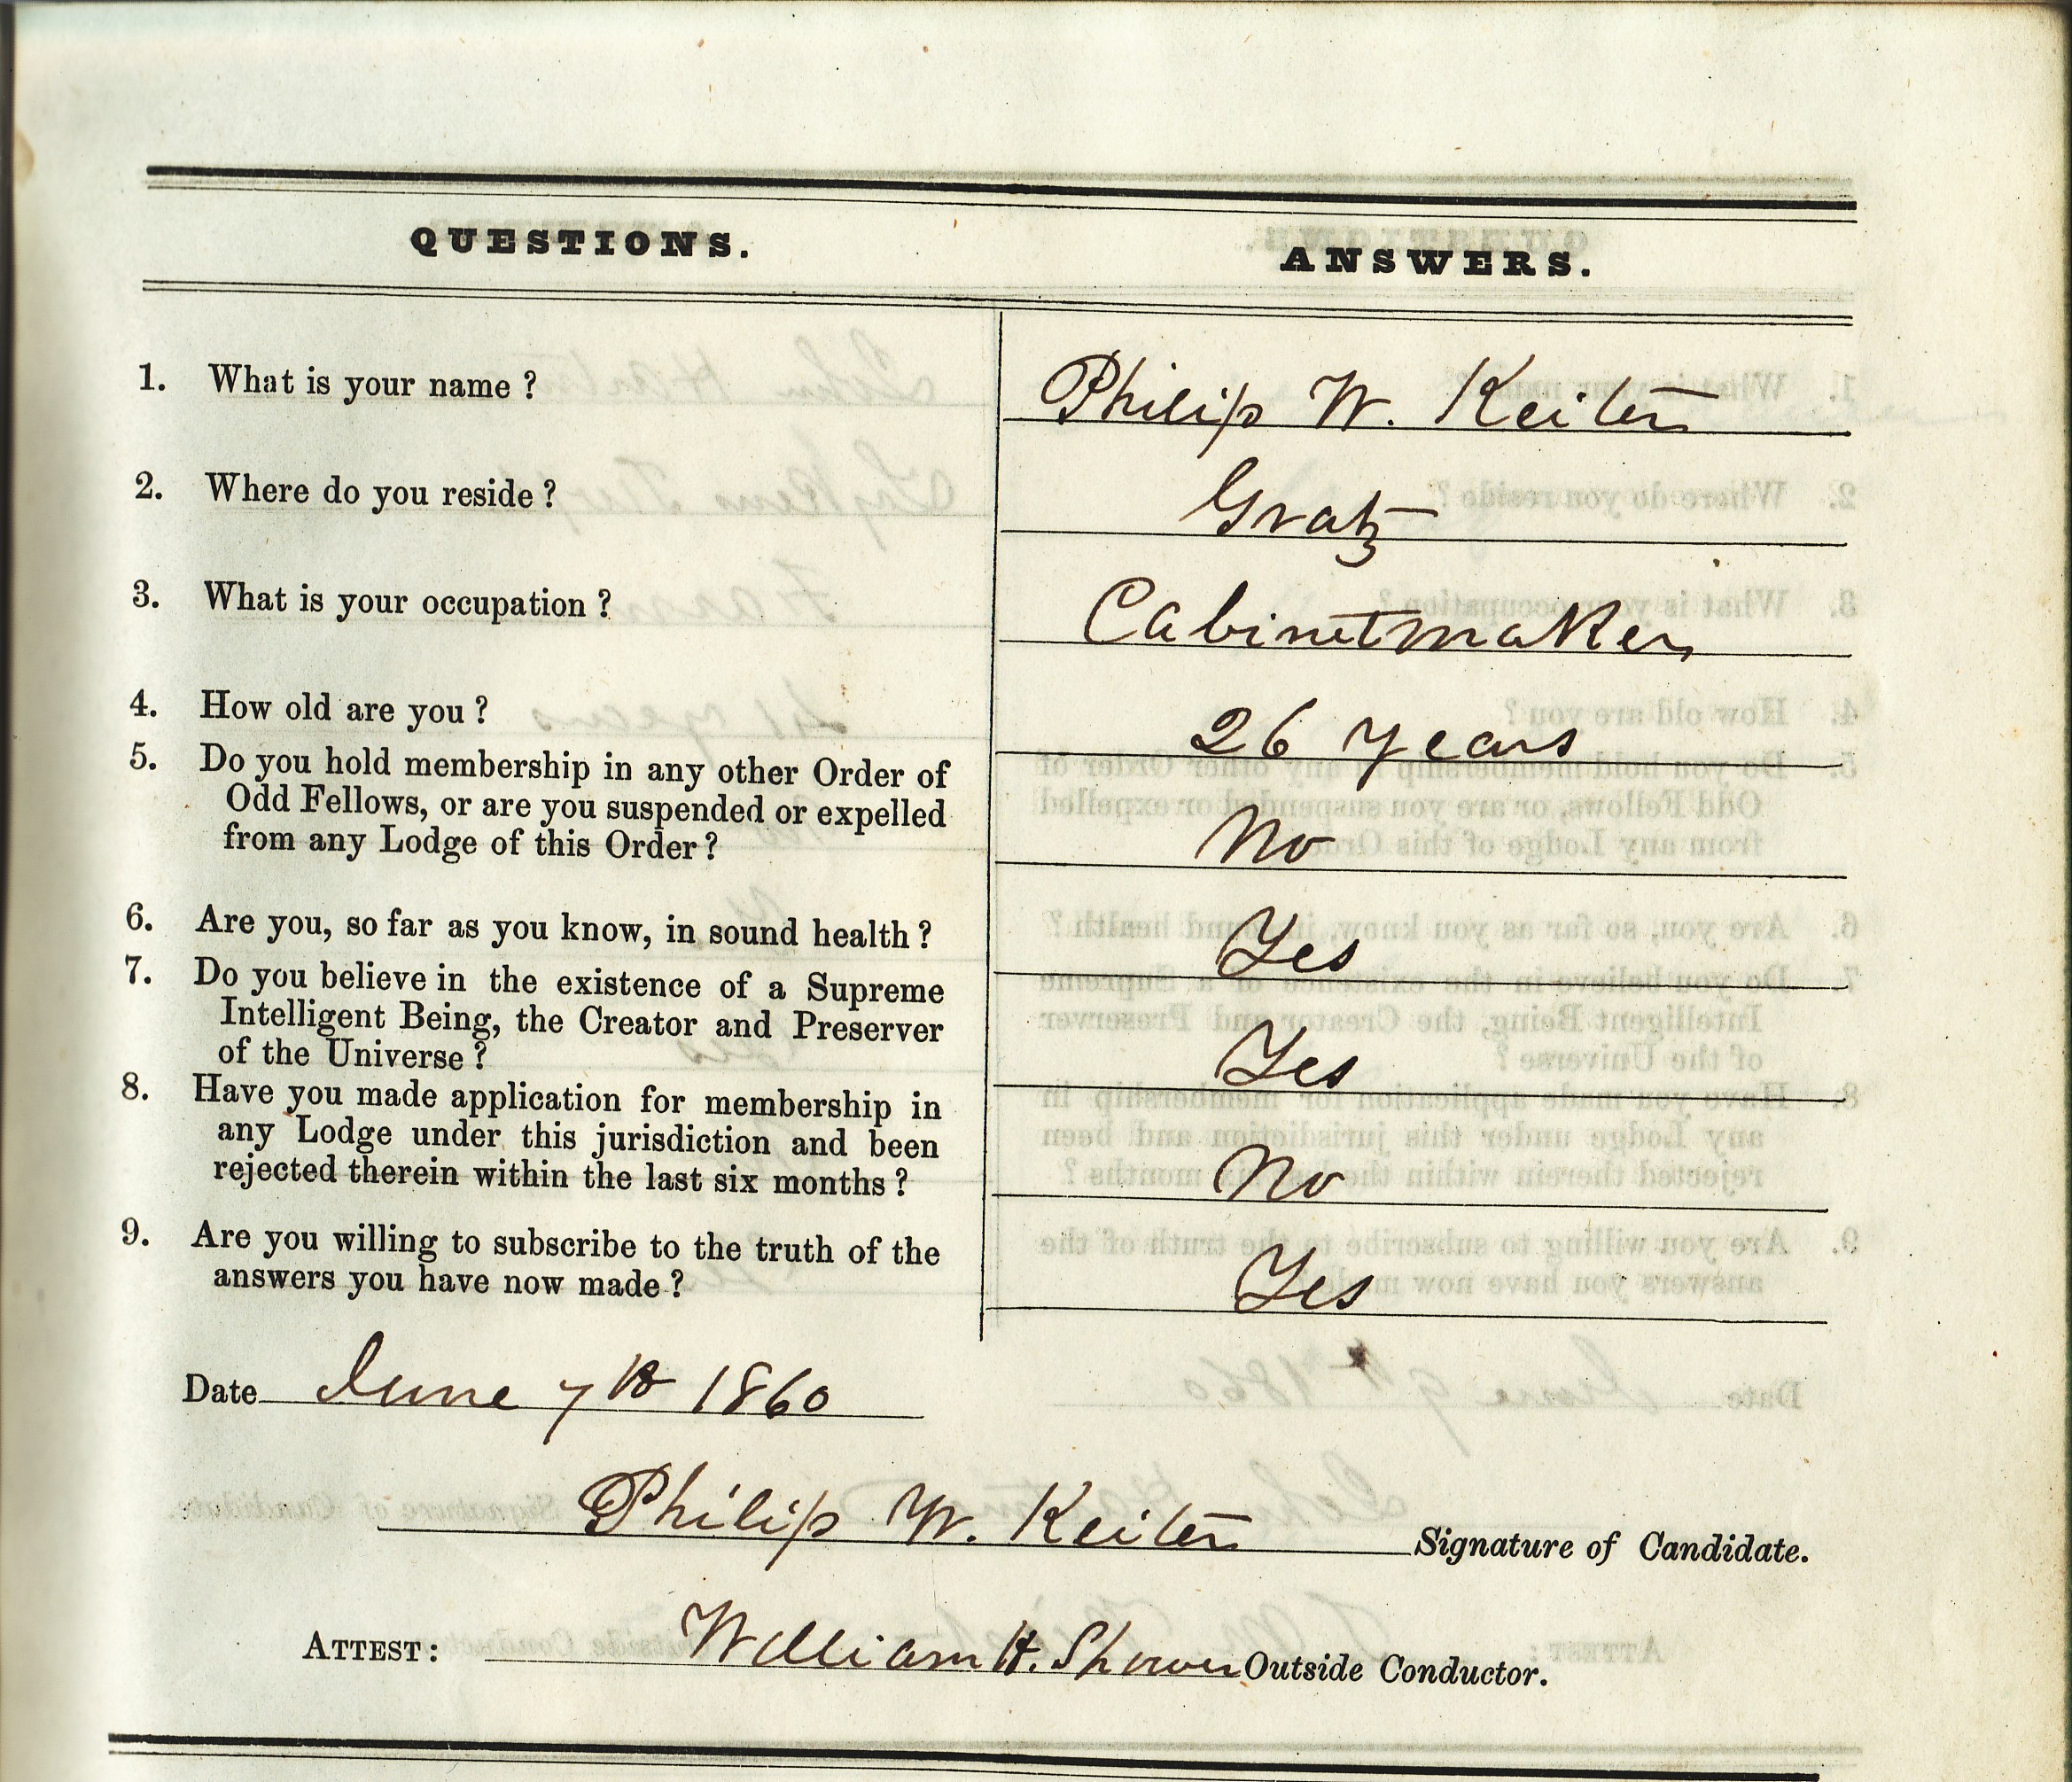 QUESTIONS. ANSWERS.
1. What is your name ? Philip W. Keiter
2. Where do you reside ? Gratz
3. What is your occupation ? Cabinetmaker
4. How old are you ? 26 Years
5. Do you hold membership in any other Order of
Odd Fellows, or are you suspended or expelled
from any Lodge of this Order ? No
6. Are you, so far as you know, in sound health ? Yes
7. Do you believe in the existence of a Supreme
Intelligent Being, the Creator and Preserver
of the Universe ? Yes
8. Have you made application for membership in
any Lodge under this jurisdiction and been
rejected therein within the last six months ? No
9. Are you willing to subscribe to the truth of the
answers you have now made ? Yes
Date June 7th 1860
Philip W. Keiter Signature of Candidate.
ATTEST: William H. Shower Outside Conductor.